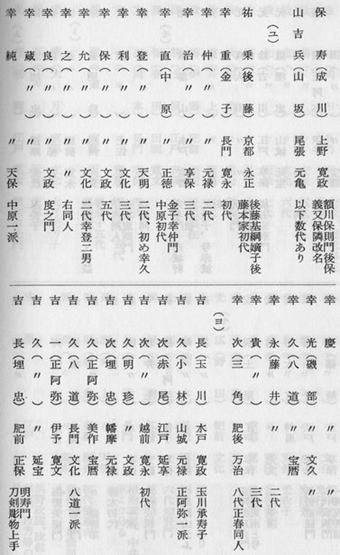 保 寿（成川） 上野 寛政 額川保則門後保義又保隣改名
山吉兵（山坂） 尾張 元亀 以下数代あり
（ユ）
祐 乗（後藤） 京都 永正 後藤基綱嫡子後藤本家初代
幸 重（金子） 長門 寛永 初代
幸 仲（〃） 〃 元禄 二代
幸 治（〃） 〃 享保 三代
幸 直（中原） 〃 正徳 金子幸仲門中原初代
幸 登（〃） 〃 天明 二代、初め幸久
幸 利（〃） 〃 文化 三代
幸 保（〃） 〃 文政 五代
幸 允（〃） 〃 文化 二代幸登二男
幸 之（〃） 〃 〃 右同人
幸 良（〃） 〃 文政 度之門
幸 蔵（〃） 〃 〃
幸 純 〃 〃 天保 中原一派
幸 慶（〃） 〃 〃
幸 光（磯部） 〃 文久
幸 久（八道） 〃 宝暦
幸 永（藤井） 〃 〃 二代
幸 貴（〃） 〃 〃 三代
幸 次（三角） 肥後 万治 八代正春同人
（ヨ）
吉 長（玉川） 水戸 寛政 玉川承寿子
吉 久（小林） 山城 元禄 正阿弥一派
吉 次（赤尾） 江戸 延享
吉 次（〃） 越前 寛永 初代
吉 久（明珍） 〃 文政
吉 次（埋忠） 幡摩 元禄
吉 久（正阿弥） 美作 宝暦
吉 久（八道） 長門 文化 八道一派
吉 一（正阿弥） 伊予 寛文
吉 久（〃） 〃 延宝
吉 長（埋忠） 肥前 正保 明寿門刀剣彫物上手